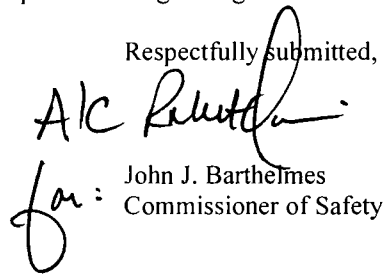 Respectfully submitted,
A/C Robert
for:
John J. Barthelmes
Commissioner of Safety